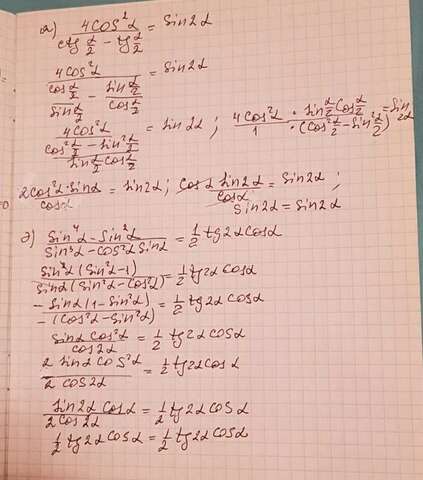 г) 4cos²α / (ctg α/2 − tg α/2) = sin2α
4cos²α / (cos α/2 / sin α/2 − sin α/2 / cos α/2) = sin2α
4cos²α / ((cos² α/2 − sin² α/2) / (sin α/2 cos α/2)) = sin2α ; 4cos²α / 1 · sin α/2 cos α/2 / (cos² α/2 − sin² α/2) = sin2α
2cos²α·sinα / cosα = sin2α ; cosα sin2α / cosα = sin2α ;
sin2α = sin2α
д) (sin⁴α − sin²α) / (sin³α − cos²α sinα) = 1/2 tg2α cosα
sin²α (sin²α − 1) / (sinα (sin²α − cos²α)) = 1/2 tg2α cosα
−sinα (1 − sin²α) / −(cos²α − sin²α) = 1/2 tg2α cosα
sinα cos²α / cos2α = 1/2 tg2α cosα
2 sinα cos²α / 2 cos2α = 1/2 tg2α cosα
sin2α cosα / 2cos2α = 1/2 tg2α cosα
1/2 tg2α cosα = 1/2 tg2α cosα